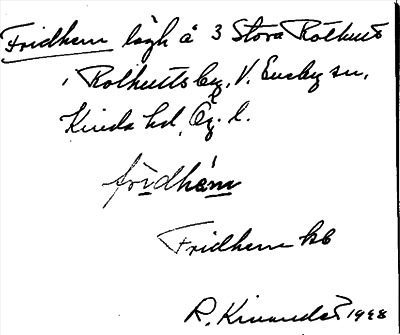 Fridhem lägh å 3 Stora Rolhults
i Rolhultsby, V. Eneby sn,
Kinda hd, Ög. l.
fridhem
Fridhem kb
R. 1928